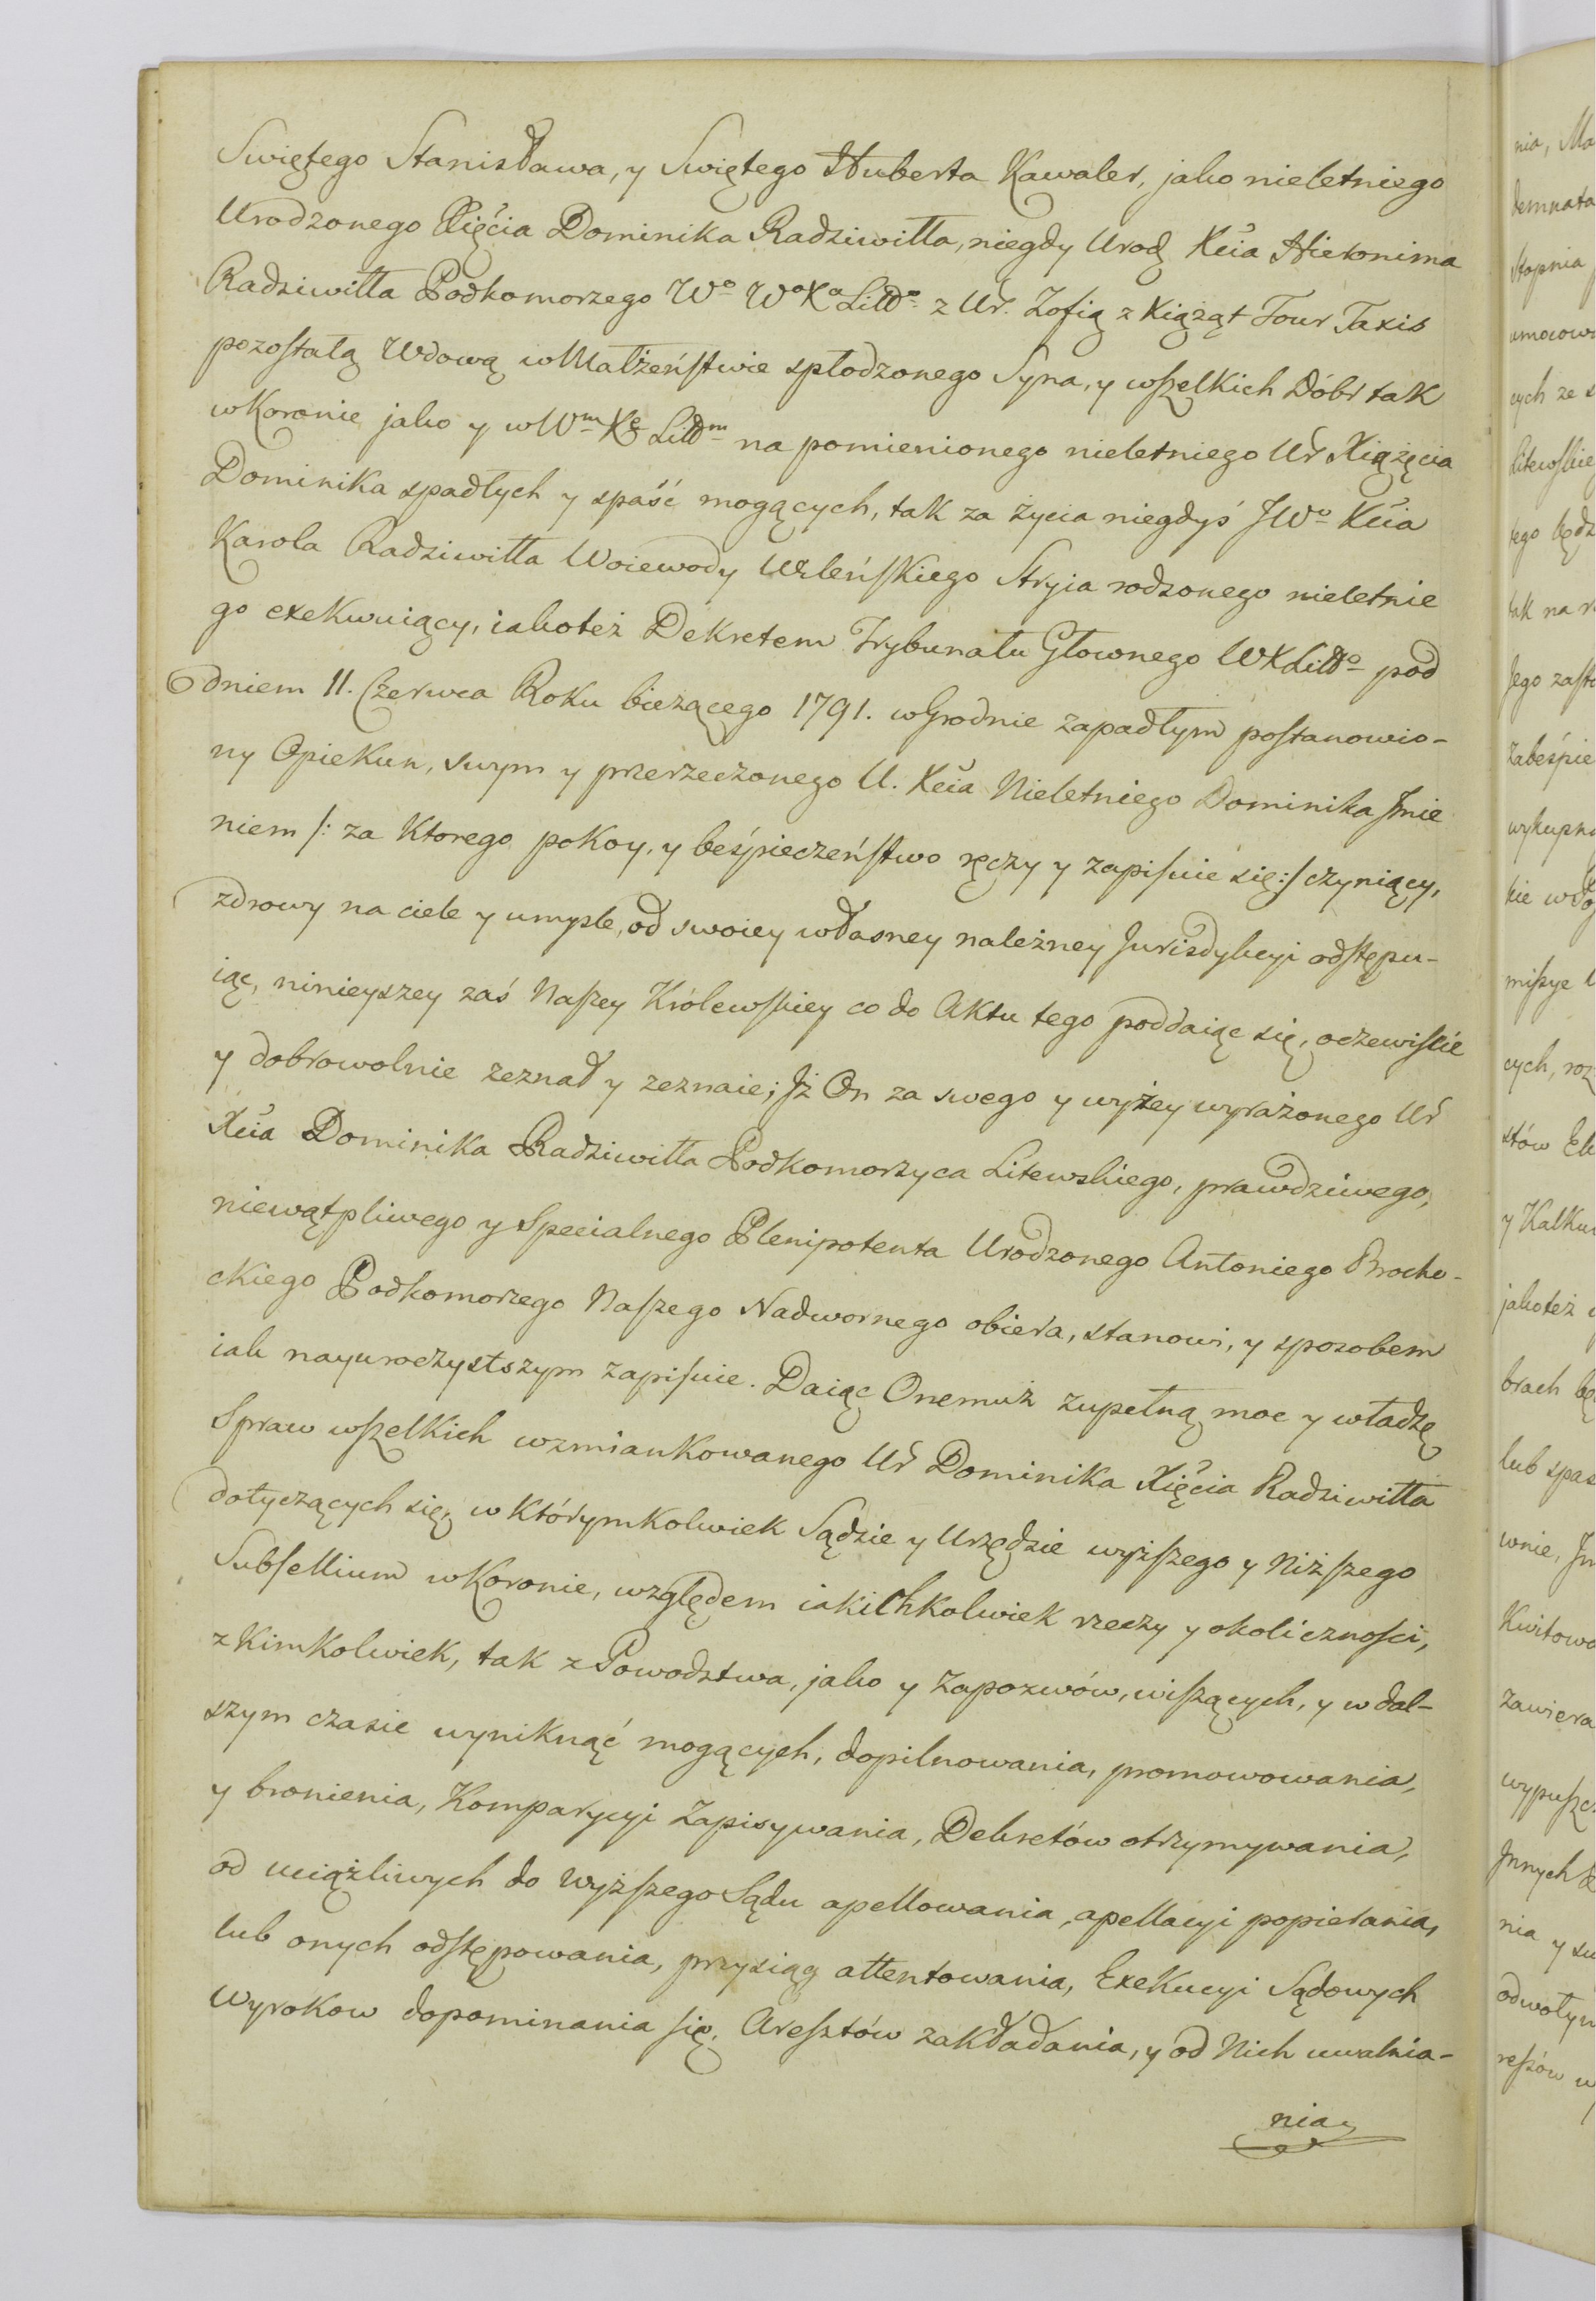 Swiętego Stanisława, y Swiętego Huberta Kawaler, jako nieletniego
Urodzonego Xięcia Dominika Radziwiłła, niegdy Urod Xcia Hieronima
Radziwiłła Podkomorzego Wo WoXa Littgo z Ur. Zofią z Xiążąt Tour Taxis
pozostałą Wdową w Małżeństwie spłodzonego Syna, y wszelkich Dóbr tak
w Koronie jako y w Wm Xe Littm na pomienionego nieletniego Ur Xiążęcia
Dominika spadłych y spaść mogących, tak za życia niegdyś JWo Xcia
Karola Radziwiłła Woiewody Wileńskiego Stryia rodzonego nieletnie
go exekwuiący, iakoteż Dekretem Trybunału Głownego WXLittgo pod
dniem 11. Czerwca Roku bieżącego 1791. w Grodnie zapadłym postanowio-
ny Opiekun, swym y przerzeczonego U. Xcia Nieletniego Dominika Jmie
niem /: za Ktorego pokoy, y beśpieczeństwo ręczy y zapisuie się :/ czyniący,
zdrowy na ciele y umyśle, od swoiey własney należney Jurisdykcyi odstępu-
iąc, ninieyszey zaś Naszey Królewskiey co do Aktu tego poddaiąc się, oczewiście
y dobrowolnie zeznał y zeznaie; Jż On za swego y wyżey wyrażonego Ur
Xcia Dominika Radziwiłła Podkomorzyca Litewskiego, prawdziwego,
niewątpliwego y Specialnego Plenipotenta Urodzonego Antoniego Brocho-
ckiego Podkomorzego Naszego Nadwornego obiera, stanowi, y sposobem
iak nayuroczystszym zapisuie. Daiąc Onemuż zupełną moc y władzę
Spraw wszelkich wzmiankowanego Ur Dominika Xięcia Radziwiłła
dotyczących się, w Którymkolwiek Sądzie y Urzędzie wyższego y Niższego
Subsellium w Koronie, względem iakichkolwiek rzeczy y okoliczności,
z Kimkolwiek, tak z Powodztwa, jako y Zapozwów, wiszących, y w dal-
szym czasie wyniknąć mogących, dopilnowania, promowowania,
y bronienia, Komparycyi Zapisywania, Dekretów otrzymywania,
od uciążliwych do Wyższego Sądu apellowania, apellacyi popierania,
lub onych odstępowania, przysiąg attentowania, Exekucyi Sądowych
Wyrokow dopominania się, Aresztów zakładania, y od Nich uwalnia-
nia,